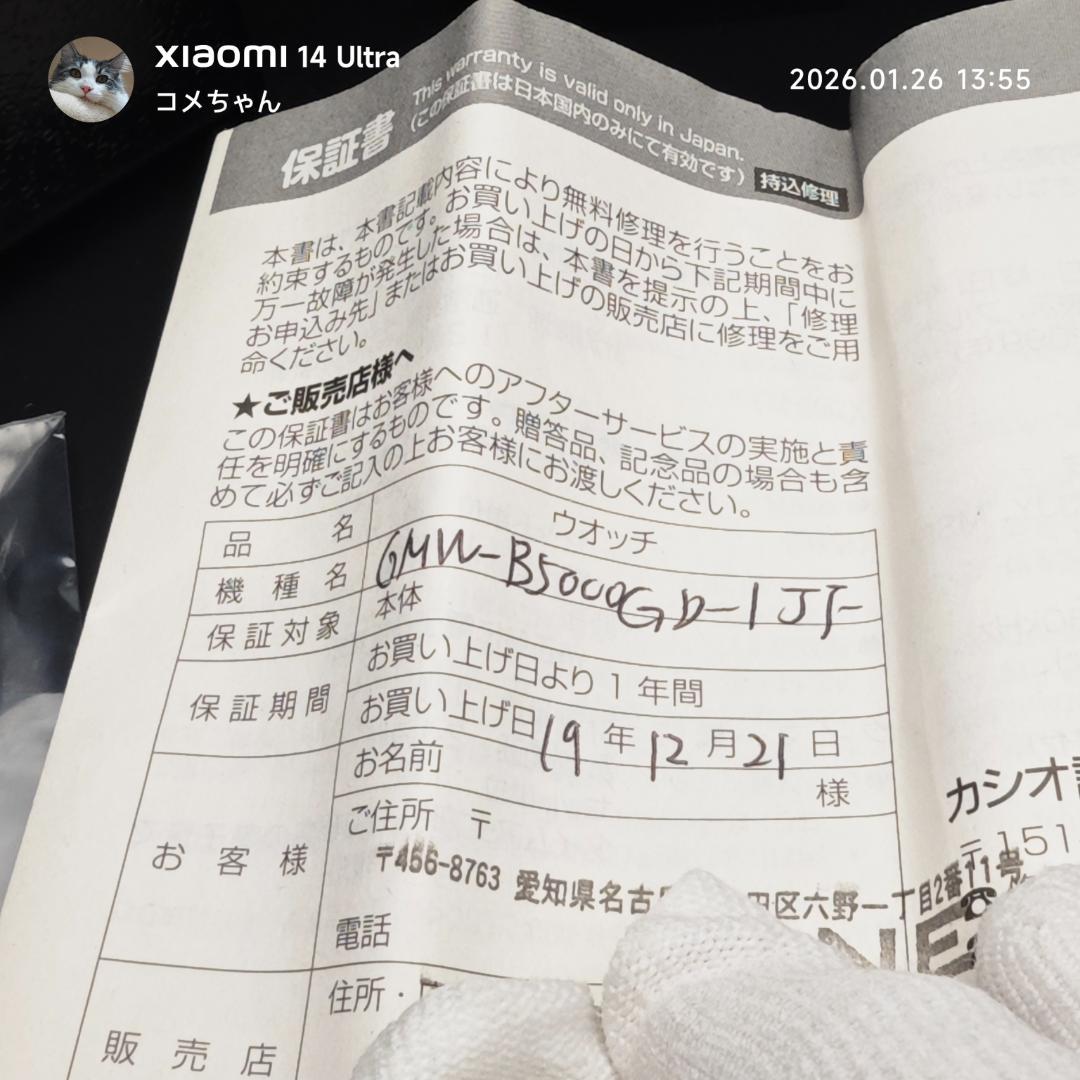 XIAOMI 14 Ultra
コメちゃん
2026.01.26 13:55
This warranty is valid only in Japan.
保証書 (この保証書は日本国内のみにて有効です) 持込修理
本書は、本書記載内容により無料修理を行うことをお
約束するものです。お買い上げの日から下記期間中に
万一故障が発生した場合は、本書を提示の上、「修理
お申込み先」またはお買い上げの販売店に修理をご用
命ください。
★ご販売店様へ
この保証書はお客様へのアフターサービスの実施と責
任を明確にするものです。贈答品、記念品の場合も含
めて必ずご記入の上お客様にお渡しください。
品名 ウオッチ
機種名 GMW-B5000GD-1JF
保証対象 本体
保証期間 お買い上げ日より1年間
お買い上げ日 19年12月21日
お客様 お名前 様
ご住所 〒
〒456-8763 愛知県名古 田区六野一丁目2番11号
電話
NE
販売店 住所・
カシオ
〒151